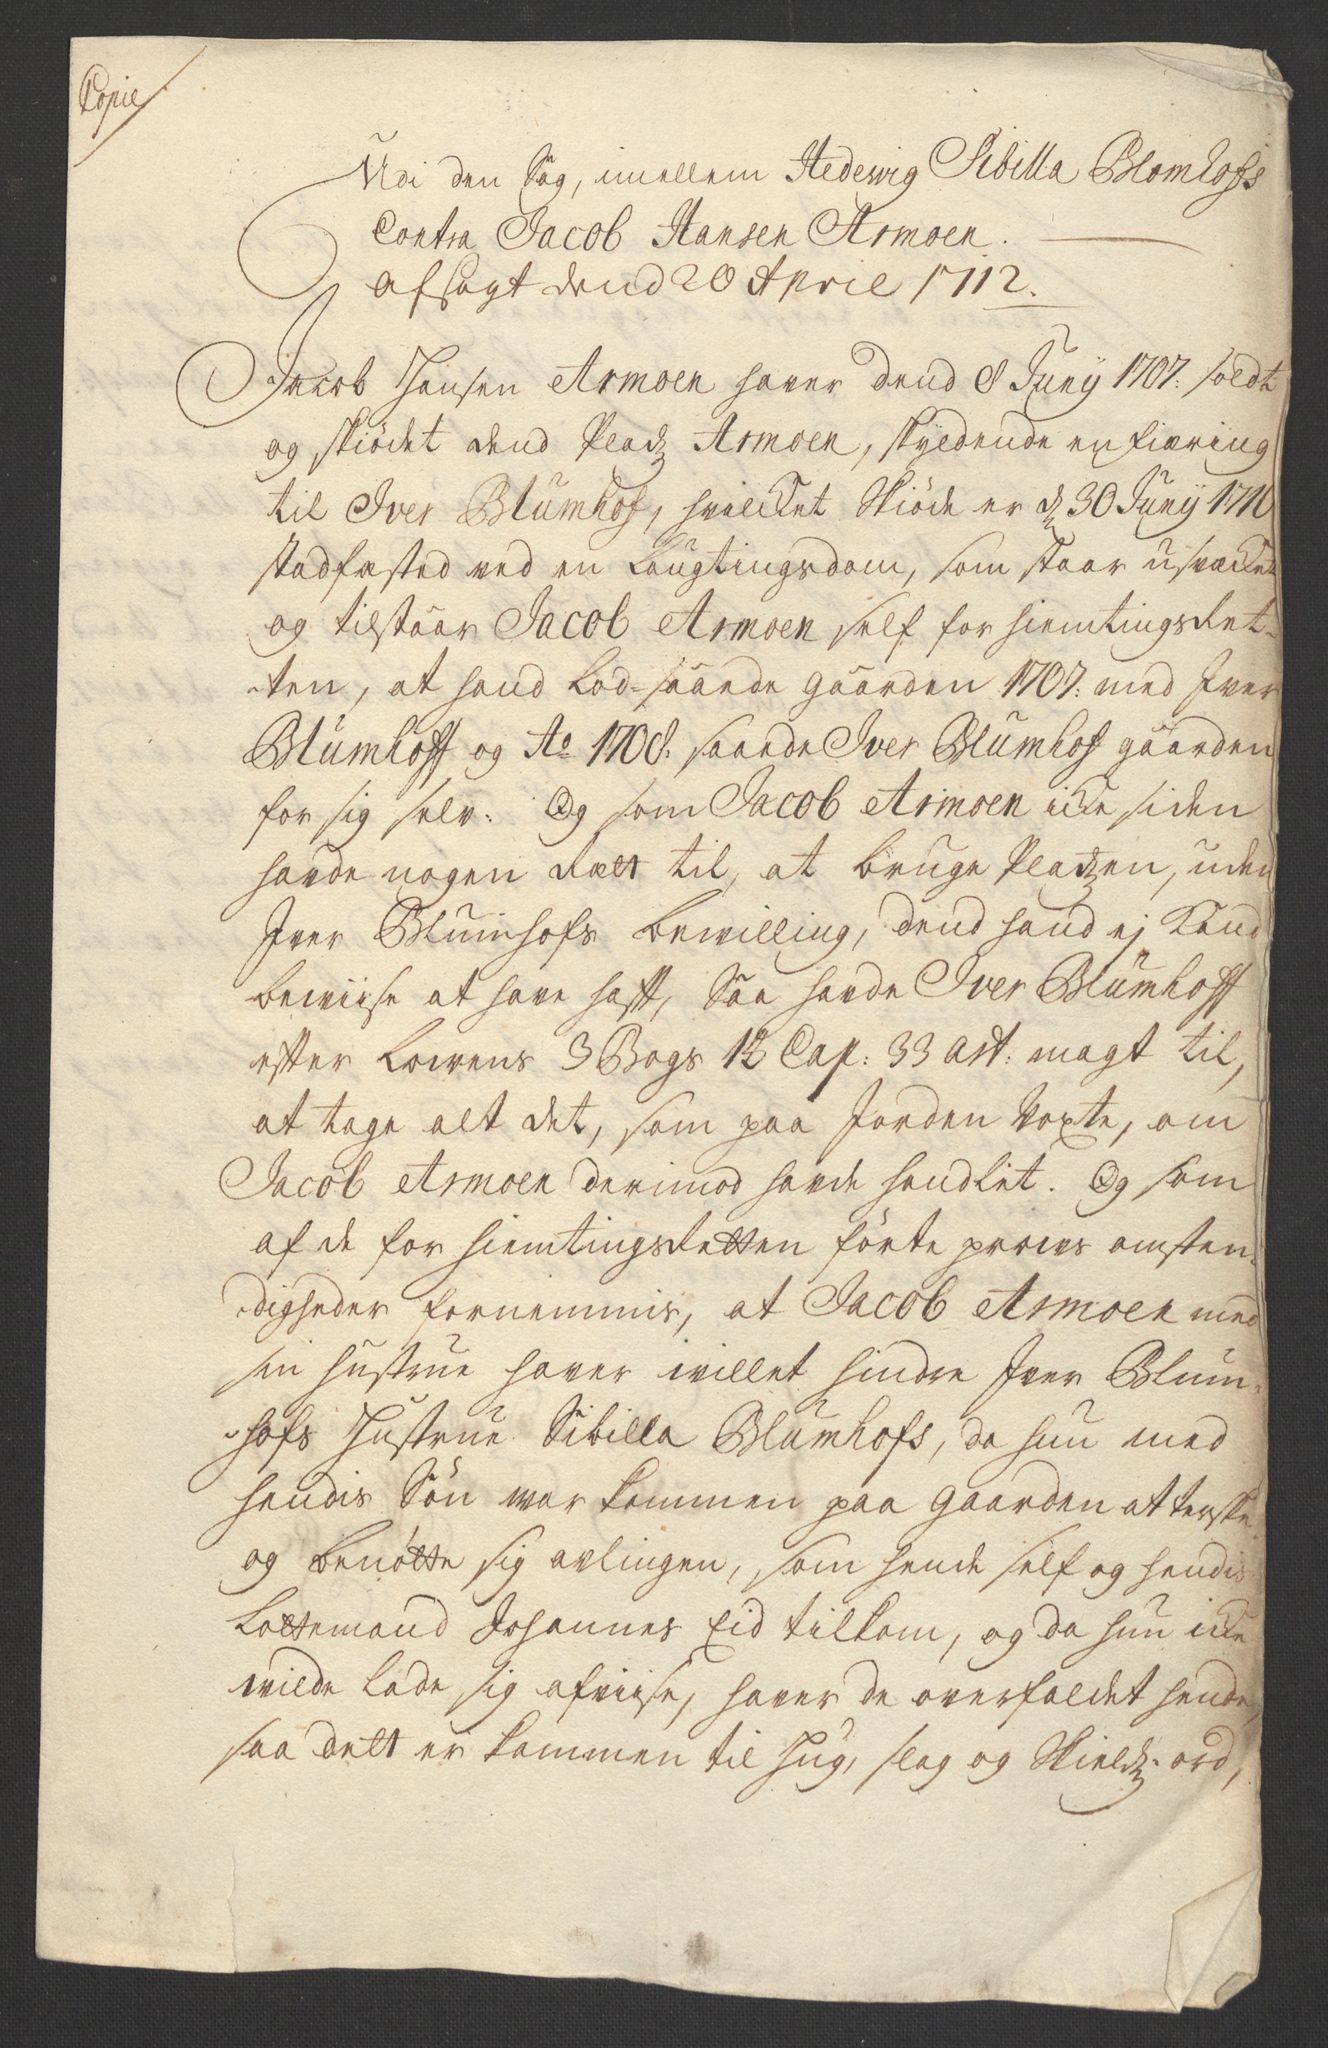 Copie
Udi den Sag, imellem Hedewig Sibilla Blomhofs
Contra Jacob Hansen Armoen.
afsagt dend 20 April 1712.
Jacob Hansen Armoen haver dend 8 Juny 1707: soldt
og skiödet dend Pladz Armoen, skyldende en fiering
til Iver Blumhof, hvilcket Skiöde er dz 30 Juny 1710
stadfæsted ved en Laugtingsdom, som staar usvæcket
og tilstaar Jacob Armoen self for hiemtingsRet-
-ten, at hand Lod-saaede gaarden 1707: med Iver
Blumhoff og Ao 1708. saaede Iver Blumhof gaarden
for sig selv. Og som Jacob Armoen icke siden
hafde nogen Rett til, at bruge Pladzen, uden
Iver Blumhofs bevilling, dend hand ej Kand
beviise at have hafft, Saa hafde Iver Blumhoff
efter Lovens 3 Bogs 12 Cap: 33 Art: magt til,
at tage alt det, som paa Jorden Voxte, om
Jacob Armoen derimod hafde handlet. Og som
af de for hiemtingsRetten förte provs omsten-
-digheder fornemmis, at Jacob Armoen med
sin hustrue haver villet hindre Iver Blum-
-hofs Hustrue Sibilla Blumhofs, da hun med
hendis Sön var kommen paa gaarden at terske
og benötte sig avlingen, som hende self og hendis
Lottemand Johannes Eid tilkom, og da hun icke
vilde lade sig afviise, haver de overfaldet hende,
saa dett er kommen til Hug, slag og Skieldz-ord,